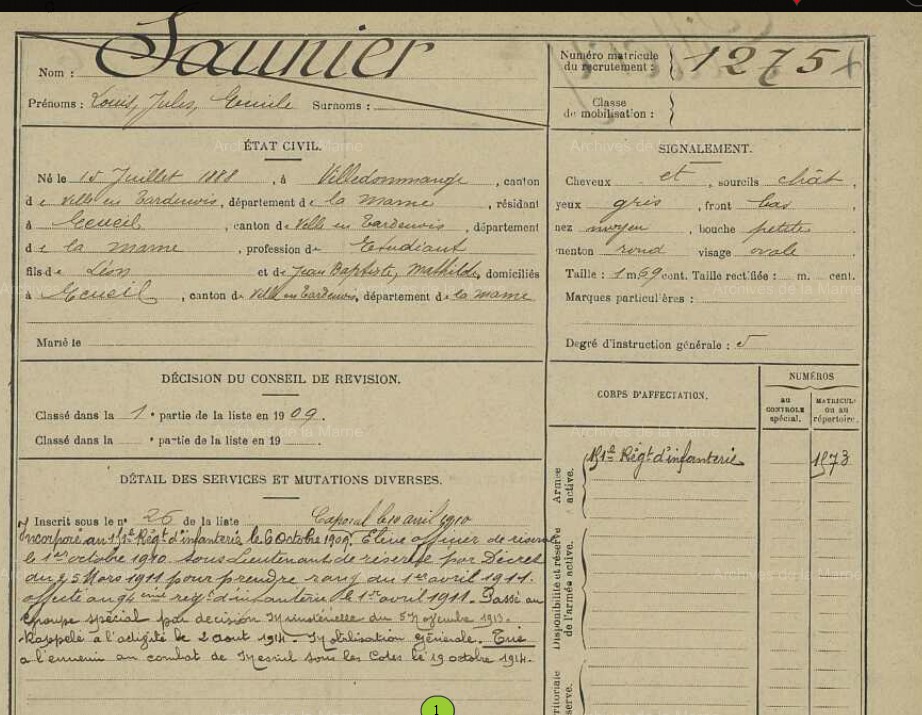 Nom : Saunier
Prénoms : Louis, Jules, Emile Surnoms :
Numéro matricule du recrutement : 1275
Classe de mobilisation :
ÉTAT CIVIL.
Né le 15 Juillet 1888, à Villedommange, canton
de Ville en Tardenois, département de la Marne, résidant
à Ecueil, canton de Ville en Tardenois, département
de la Marne, profession de Etudiant
fils de Léon et de Jean Baptiste, Mathilde, domiciliés
à Ecueil, canton de Ville en Tardenois, département de la Marne
Marié le
SIGNALEMENT.
Cheveux et, sourcils chât,
yeux gris, front bas
nez moyen, bouche petite
menton rond visage ovale
Taille : 1 m 69 cent. Taille rectifiée : m. cent.
Marques particulières :
Degré d'instruction générale : 5
DÉCISION DU CONSEIL DE REVISION.
Classé dans la 1e partie de la liste en 1909.
Classé dans la e partie de la liste en 19
DÉTAIL DES SERVICES ET MUTATIONS DIVERSES.
Inscrit sous le n° 26 de la liste Caporal le 10 avril 1910
Incorporé au Régt d'infanterie le 6 Octobre 1909. Elève officier de réserve
le 1er octobre 1910. Sous Lieutenant de réserve par Décret
du 25 Mars 1911 pour prendre rang du 1er avril 1911.
affecté au régt d'infanterie le 1er avril 1911. Passé au
groupe spécial par décision Ministérielle du 5 Novembre 1913.
Rappelé à l'activité le 2 aout 1914. Mobilisation Générale. Tué
a l'ennemi au combat de Mesnil sous les Cotes le 19 octobre 1914.
CORPS D'AFFECTATION.
NUMÉROS
AU CONTROLE spécial.
MATRICULE ou au répertoire.
Armée active.
Régt d'infanterie
1873
Disponibilité et réserve de l'armée active.
Archives de la Marne
1